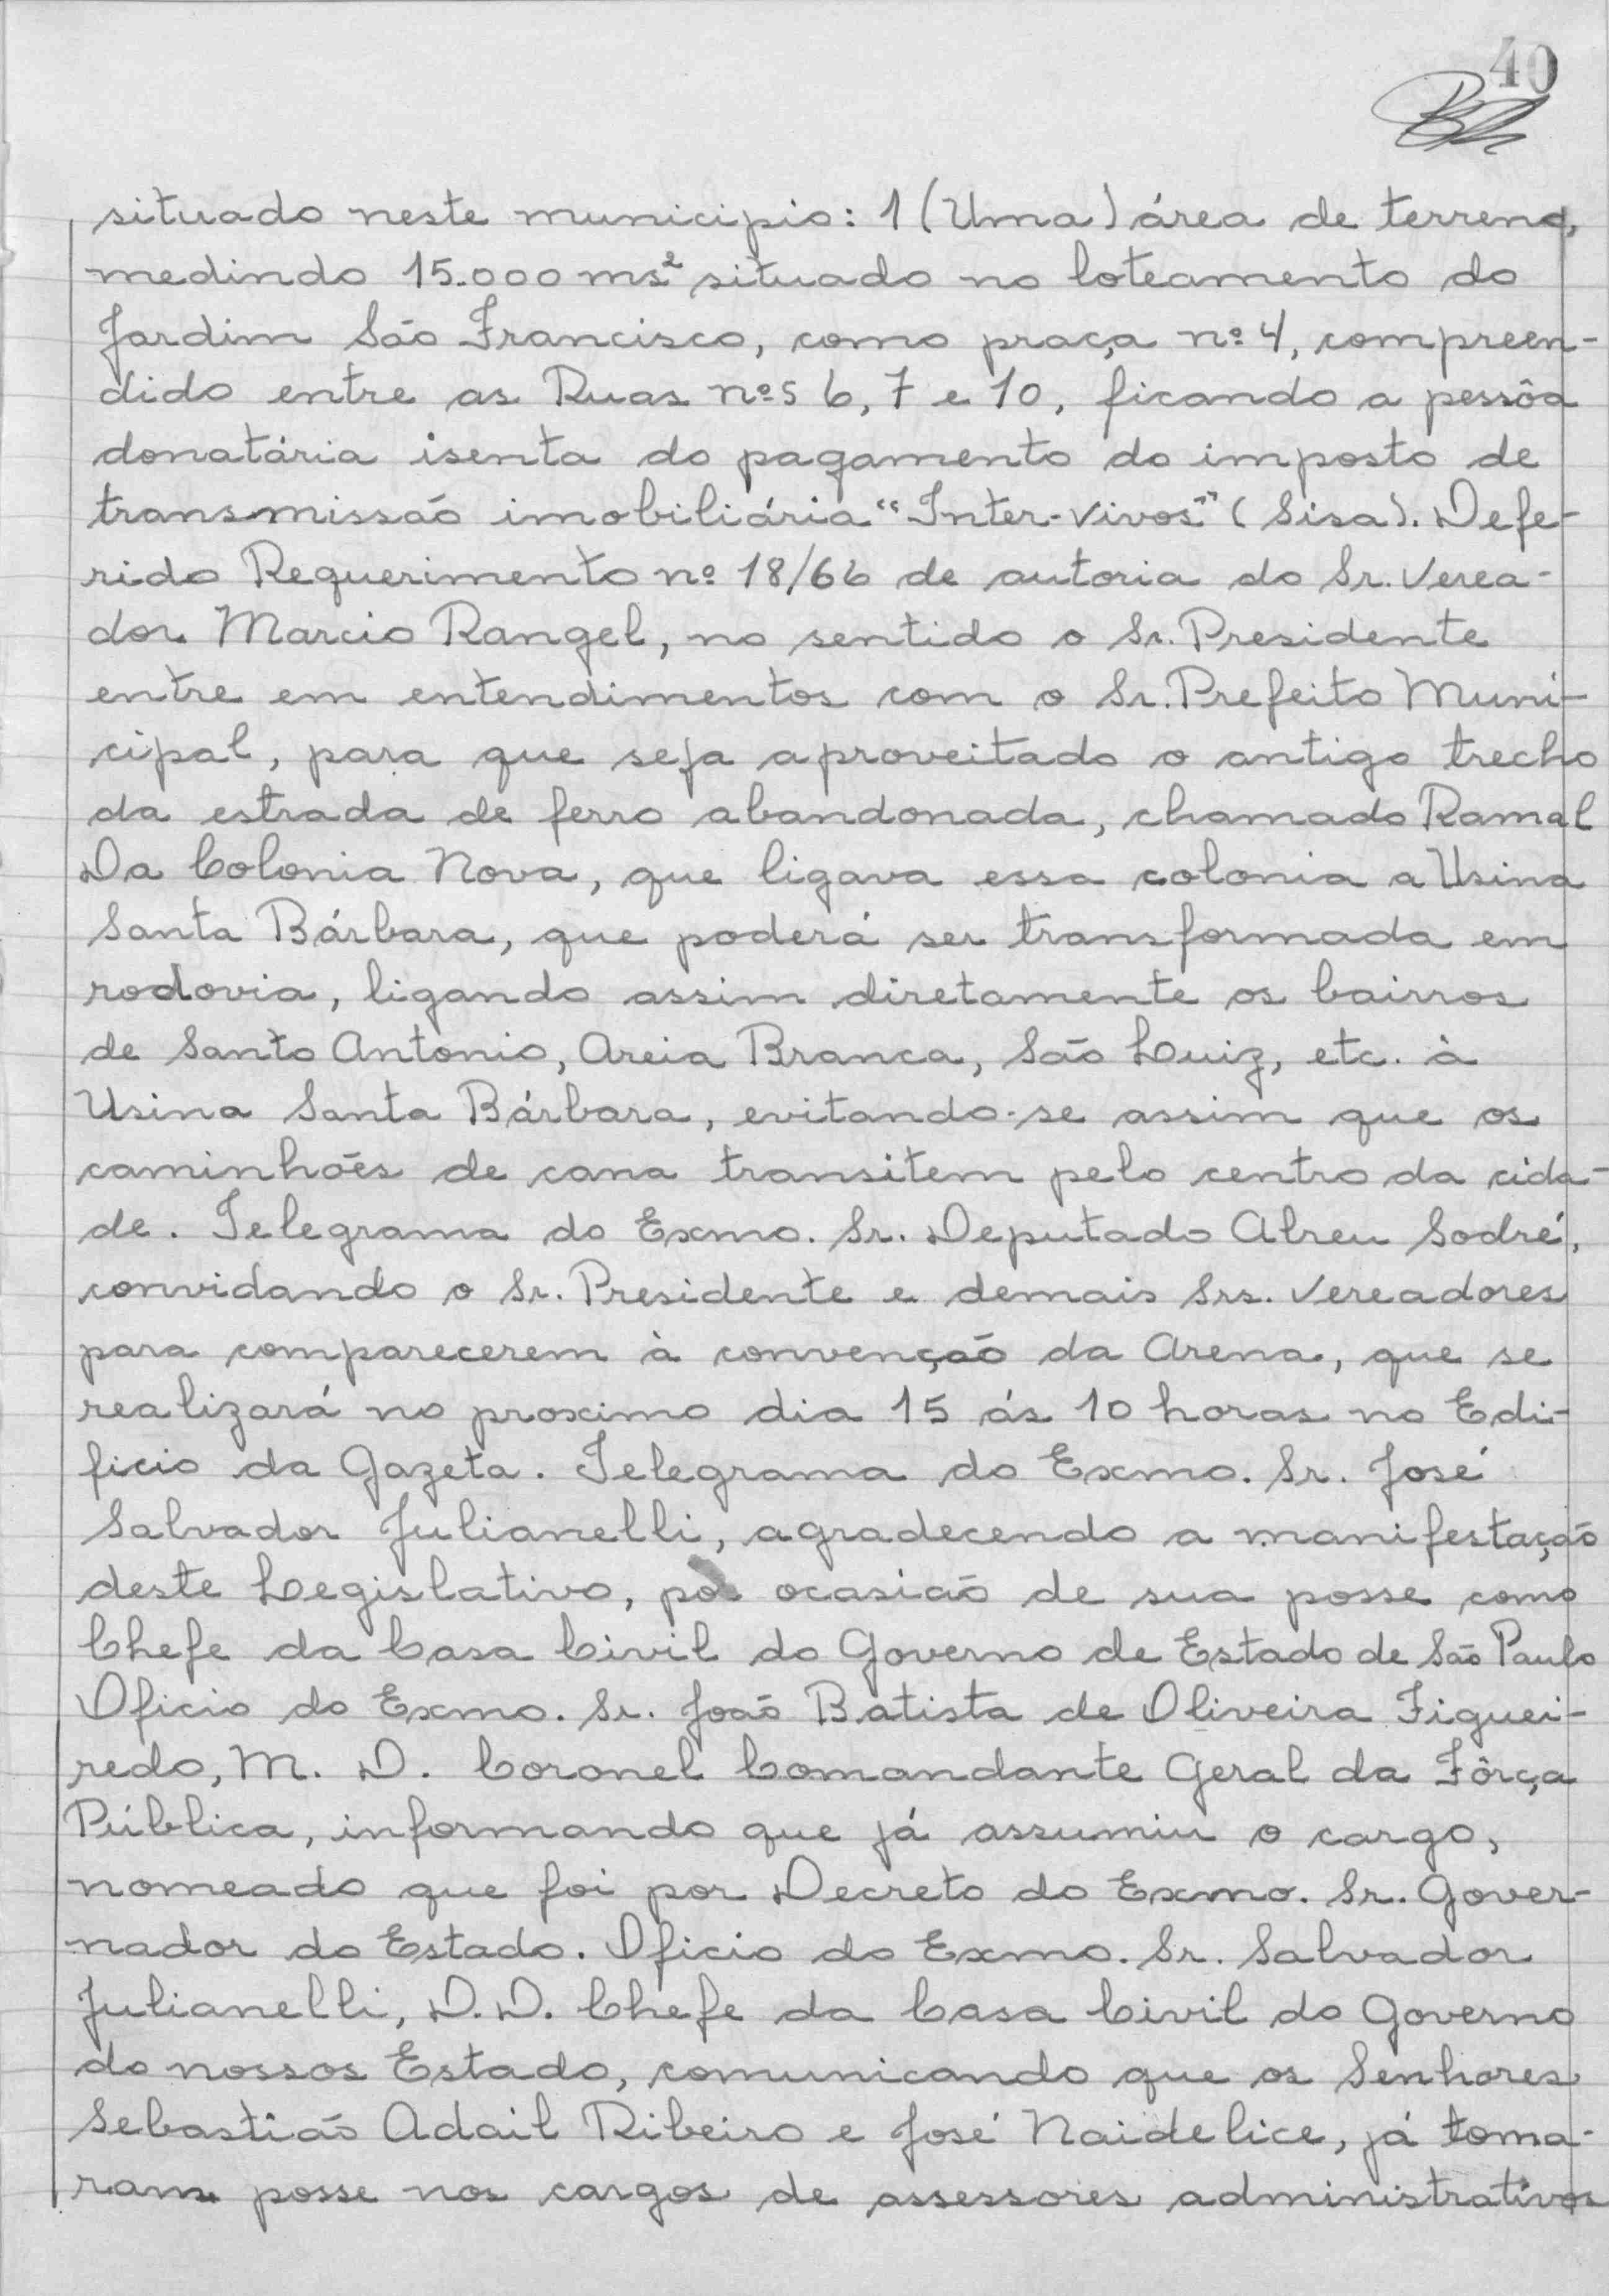 40
situado neste municipio: 1 (Uma) área de terreno,
medindo 15.000 ms² situado no loteamento do
Jardim São Francisco, como praça nº 4, compreen-
dido entre as Ruas nºs 6, 7 e 10, ficando a pessôa
donatária isenta do pagamento do imposto de
transmissão imobiliária "Inter-vivos" (Sisa). Defe-
rido Requerimento nº 18/66 de autoria do Sr. Verea-
dor Marcio Rangel, no sentido o Sr. Presidente
entre em entendimentos com o Sr. Prefeito Muni-
cipal, para que seja aproveitado o antigo trecho
da estrada de ferro abandonada, chamado Ramal
Da Colonia Nova, que ligava essa colonia a Usina
Santa Bárbara, que poderá ser transformada em
rodovia, ligando assim diretamente os bairros
de Santo Antonio, Areia Branca, São Luiz, etc. à
Usina Santa Bárbara, evitando-se assim que os
caminhões de cana transitem pelo centro da cida-
de. Telegrama do Exmo. Sr. Deputado Abreu Sodré,
convidando o Sr. Presidente e demais Srs. Vereadores
para comparecerem à convenção da Arena, que se
realizará no proximo dia 15 ás 10 horas no Edi-
ficio da Gazeta. Telegrama do Exmo. Sr. José
Salvador Julianelli, agradecendo a manifestação
deste Legislativo, por ocasião de sua posse como
Chefe da Casa Civil do Governo de Estado de São Paulo
Oficio do Exmo. Sr. João Batista de Oliveira Figuei-
redo, M. D. Coronel Comandante Geral da Fôrça
Pública, informando que já assumiu o cargo,
nomeado que foi por Decreto do Exmo. Sr. Gover-
nador do Estado. Oficio do Exmo. Sr. Salvador
Julianelli, D.D. Chefe da Casa Civil do Governo
do nossos Estado, comunicando que os Senhores
Sebastião Adail Ribeiro e José Naidelice, já toma-
ram posse nos cargos de assessores administrativos